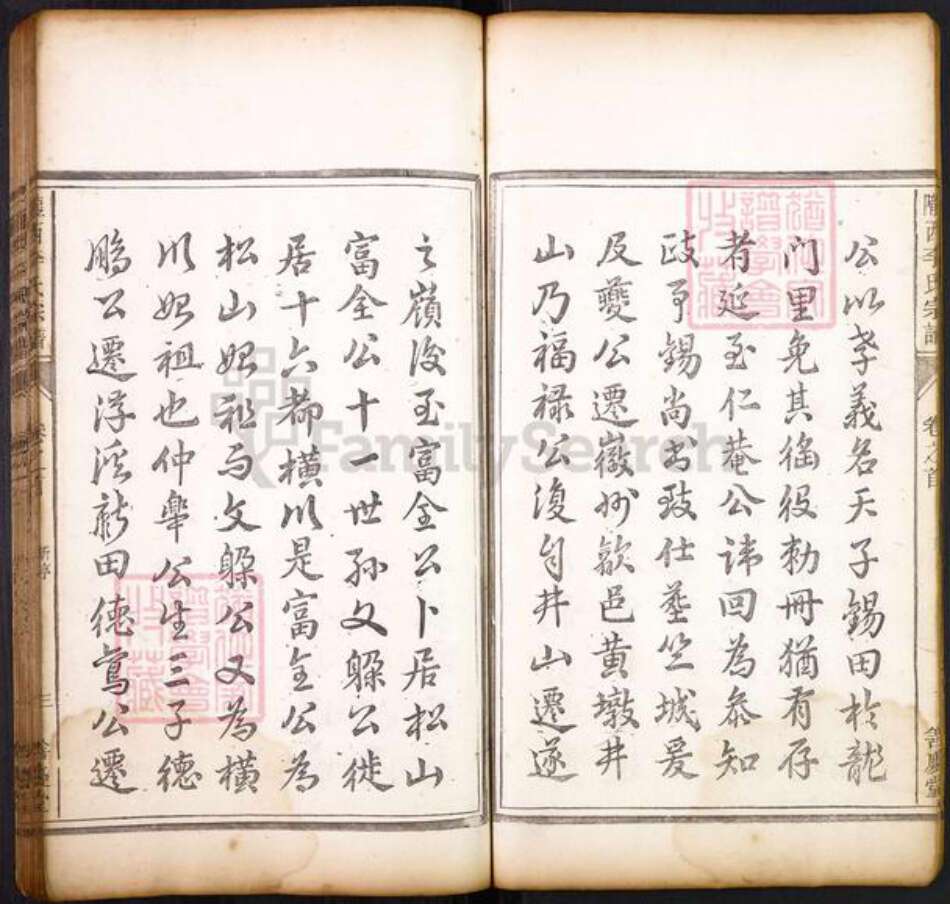 公以孝義名天子錫田於龍
門里免其徭役勅冊猶有存
者延至仁菴公諱回為叅知
政事錫尚書致仕塟竺城爰
及夔公遷徽州歙邑黃墩井
山乃福祿公復自井山遷遂
之嶺後至富全公卜居松山
富全公十一世孫文躲公徙
居十六都橫川是富全公為
松山始祖而文躲公又為橫
川始祖也仲舉公生三子德
鵬公遷浮溪新田德鸞公遷
隴西李氏宗譜
卷之首
新序
三
FamilySearch